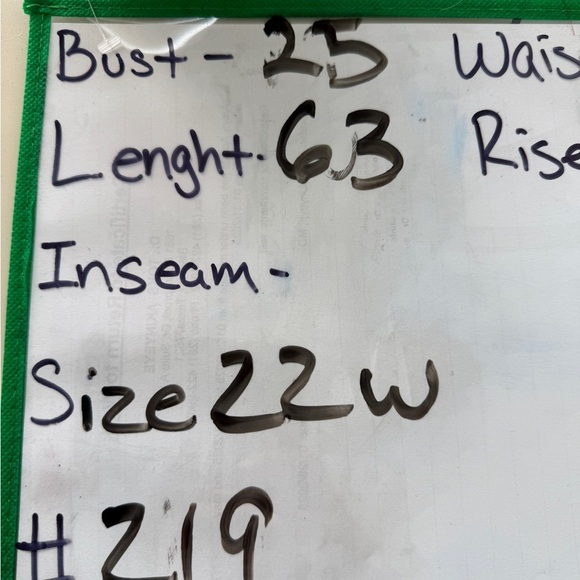 Bust - 25 Wais
Lenght. 63 Rise
Inseam -
Size 22w
# 219